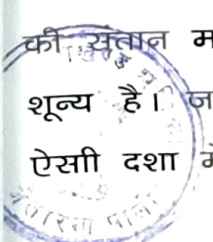 की संतान म
शून्य है। ज
ऐसी दशा